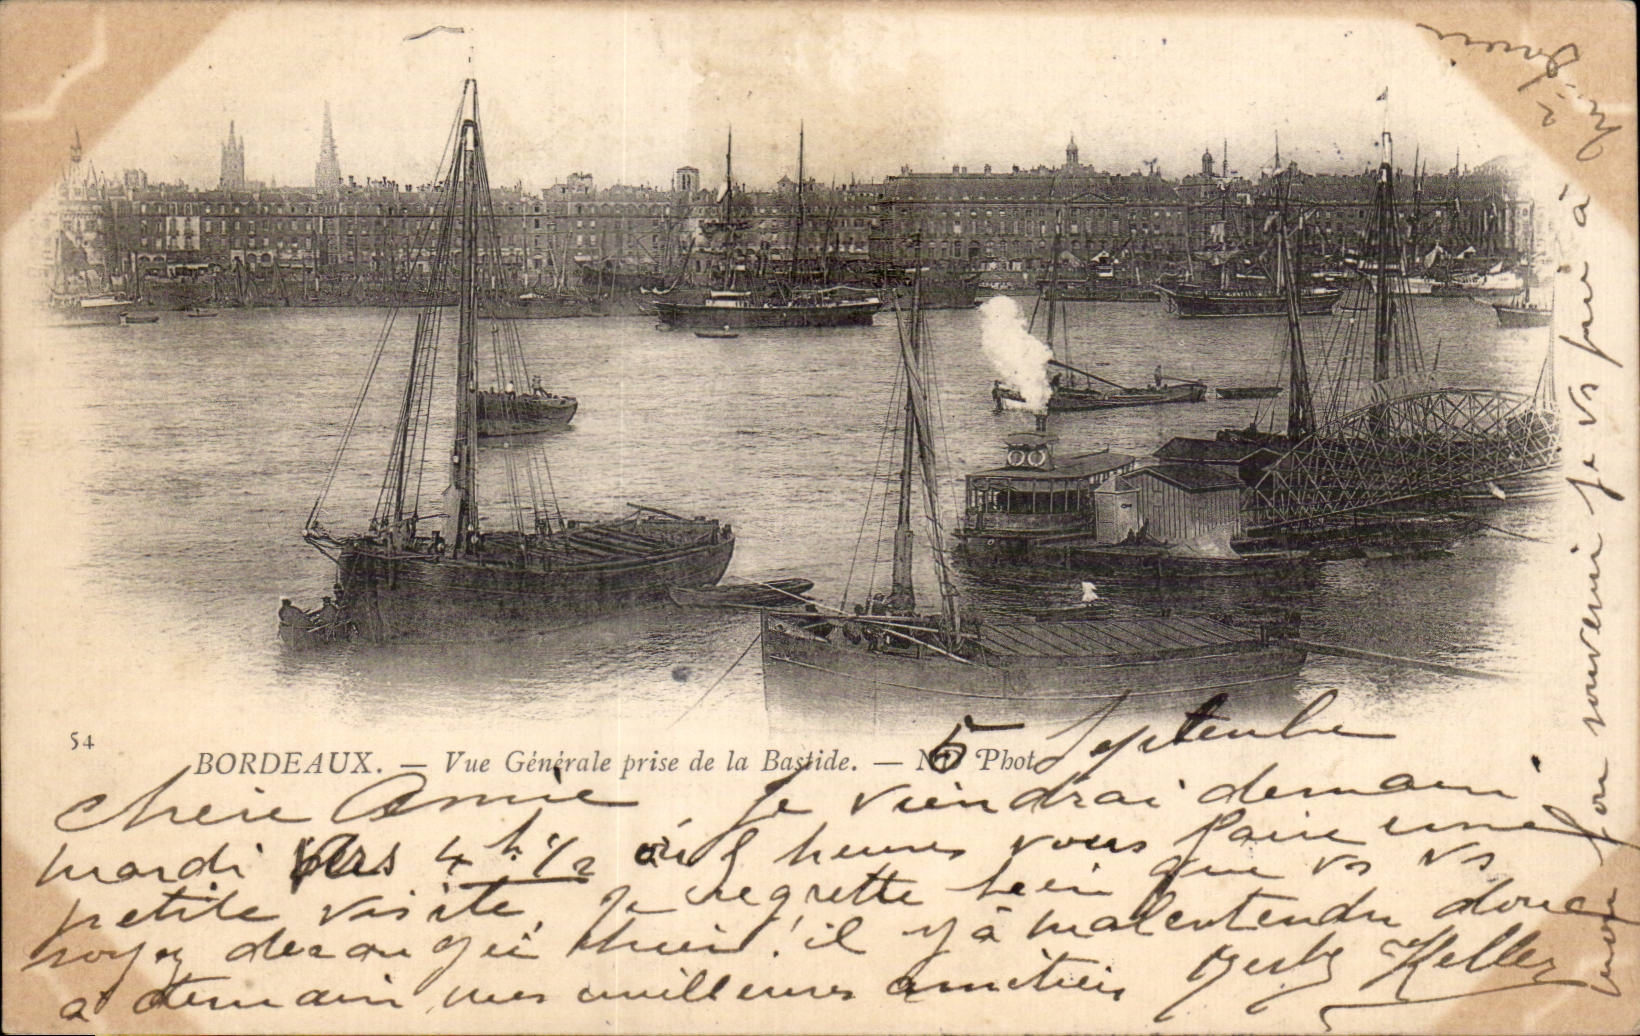 54
BORDEAUX. — Vue Générale prise de la Bastide. — ND Phot.
5 Septembre
Chère Amie Je viendrai demain
mardi vers 4 h. 1/2 où 5 heures vous faire une
petite visite, Je regrette bien que vs vs
soyez dérangée hier! il y à malentendu donc
à demain, mes meilleures amitiés Keller
mon bon souvenir je vs prie à